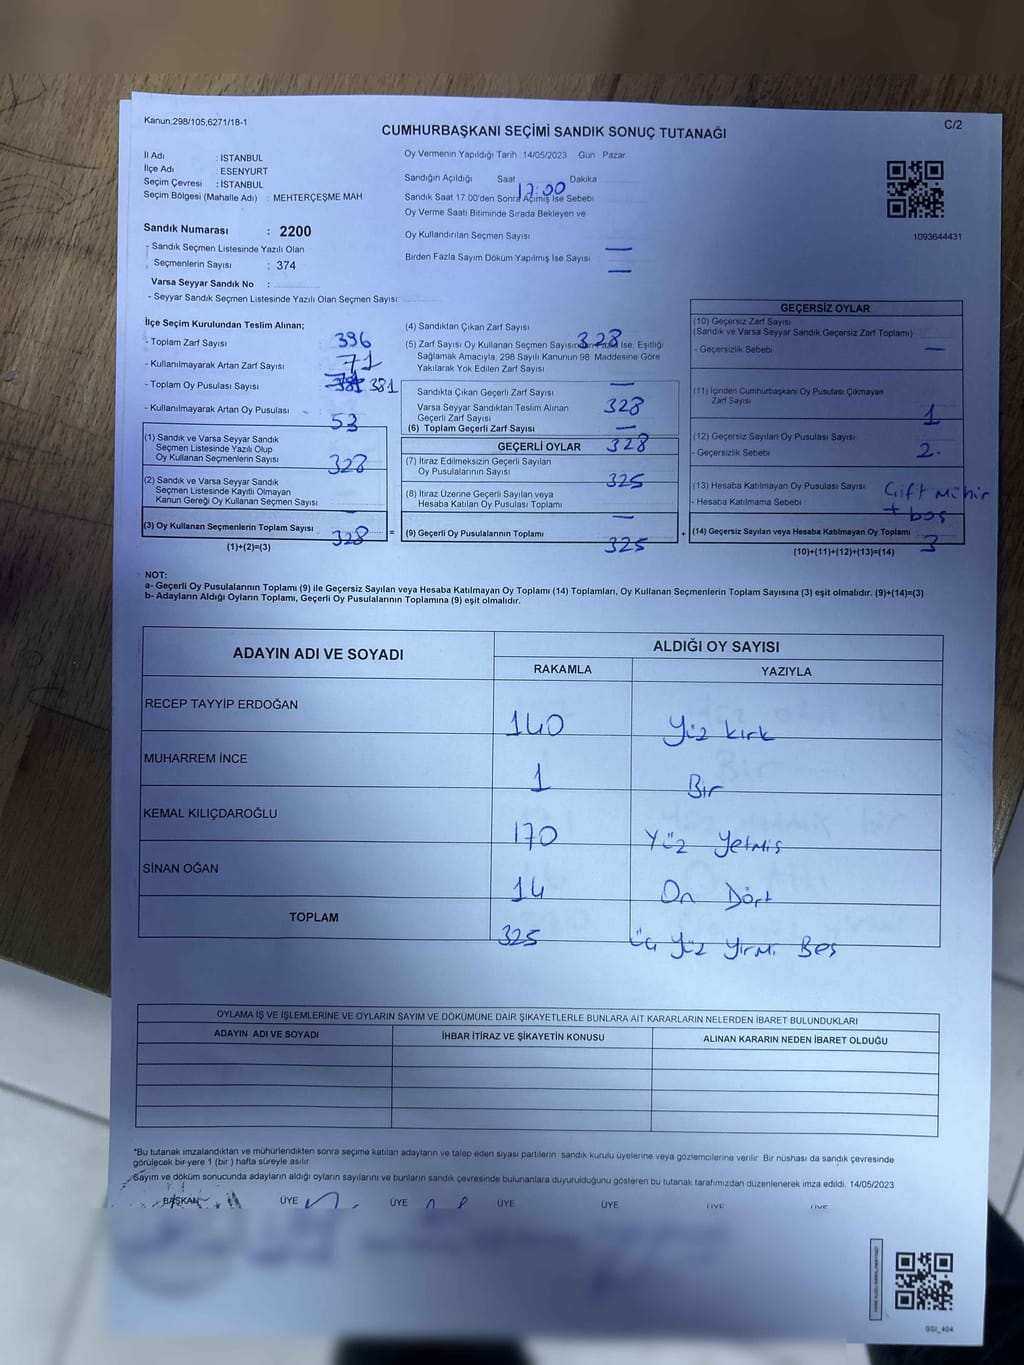 Kanun;298/105,6271/18-1
C/2
CUMHURBAŞKANI SEÇİMİ SANDIK SONUÇ TUTANAĞI
İl Adı : İSTANBUL
İlçe Adı : ESENYURT
Seçim Çevresi : İSTANBUL
Seçim Bölgesi (Mahalle Adı) : MEHTERÇEŞME MAH.
Sandık Numarası : 2200
- Sandık Seçmen Listesinde Yazılı Olan
Seçmenlerin Sayısı : 374
Varsa Seyyar Sandık No :
- Seyyar Sandık Seçmen Listesinde Yazılı Olan Seçmen Sayısı:
Oy Vermenin Yapıldığı Tarih :14/05/2023 Gün : Pazar
Sandığın Açıldığı Saat 17:00 Dakika
Sandık Saat 17:00'den Sonra Açılmış İse Sebebi
Oy Verme Saati Bitiminde Sırada Bekleyen ve
Oy Kullandırılan Seçmen Sayısı —
Birden Fazla Sayım Döküm Yapılmış İse Sayısı —
1093644431
İlçe Seçim Kurulundan Teslim Alınan;
- Toplam Zarf Sayısı 396
- Kullanılmayarak Artan Zarf Sayısı 71
- Toplam Oy Pusulası Sayısı 381
- Kullanılmayarak Artan Oy Pusulası 53
(1) Sandık ve Varsa Seyyar Sandık
Seçmen Listesinde Yazılı Olup
Oy Kullanan Seçmenlerin Sayısı 328
(2) Sandık ve Varsa Seyyar Sandık
Seçmen Listesinde Kayıtlı Olmayan
Kanun Gereği Oy Kullanan Seçmen Sayısı —
(3) Oy Kullanan Seçmenlerin Toplam Sayısı 328
(1)+(2)=(3)
=
(4) Sandıktan Çıkan Zarf Sayısı 328
(5) Zarf Sayısı Oy Kullanan Seçmen Sayısından Fazla İse, Eşitliği
Sağlamak Amacıyla, 298 Sayılı Kanunun 98. Maddesine Göre
Yakılarak Yok Edilen Zarf Sayısı —
Sandıkta Çıkan Geçerli Zarf Sayısı 328
Varsa Seyyar Sandıktan Teslim Alınan
Geçerli Zarf Sayısı —
(6) Toplam Geçerli Zarf Sayısı 328
GEÇERLİ OYLAR
(7) İtiraz Edilmeksizin Geçerli Sayılan
Oy Pusulalarının Sayısı 325
(8) İtiraz Üzerine Geçerli Sayılan veya
Hesaba Katılan Oy Pusulaları Toplamı —
(9) Geçerli Oy Pusulalarının Toplamı 325
+
GEÇERSİZ OYLAR
(10) Geçersiz Zarf Sayısı
(Sandık ve Varsa Seyyar Sandık Geçersiz Zarf Toplamı)
- Geçersizlik Sebebi —
(11) İçinden Cumhurbaşkanı Oy Pusulası Çıkmayan
Zarf Sayısı 1
(12) Geçersiz Sayılan Oy Pusulası Sayısı 2
- Geçersizlik Sebebi :
(13) Hesaba Katılmayan Oy Pusulası Sayısı
- Hesaba Katılmama Sebebi : Çift mühür
+ boş
(14) Geçersiz Sayılan veya Hesaba Katılmayan Oy Toplamı 3
(10)+(11)+(12)+(13)=(14)
NOT:
a- Geçerli Oy Pusulalarının Toplamı (9) ile Geçersiz Sayılan veya Hesaba Katılmayan Oy Toplamı (14) Toplamları, Oy Kullanan Seçmenlerin Toplam Sayısına (3) eşit olmalıdır. (9)+(14)=(3)
b- Adayların Aldığı Oyların Toplamı, Geçerli Oy Pusulalarının Toplamına (9) eşit olmalıdır.
ADAYIN ADI VE SOYADI
ALDIĞI OY SAYISI
RAKAMLA YAZIYLA
RECEP TAYYİP ERDOĞAN 140 Yüz kırk
MUHARREM İNCE 1 Bir
KEMAL KILIÇDAROĞLU 170 Yüz Yetmiş
SİNAN OĞAN 14 On Dört
TOPLAM 325 Üç Yüz Yirmi Beş
OYLAMA İŞ VE İŞLEMLERİNE VE OYLARIN SAYIM VE DÖKÜMÜNE DAİR ŞİKAYETLERLE BUNLARA AİT KARARLARIN NELERDEN İBARET BULUNDUKLARI
ADAYIN ADI VE SOYADI İHBAR İTİRAZ VE ŞİKAYETİN KONUSU ALINAN KARARIN NEDEN İBARET OLDUĞU
*Bu tutanak imzalandıktan ve mühürlendikten sonra seçime katılan adayların ve talep eden siyasi partilerin sandık kurulu üyelerine veya gözlemcilerine verilir. Bir nüshası da sandık çevresinde
görülecek bir yere 1 (bir ) hafta süreyle asılır.
Sayım ve döküm sonucunda adayların aldığı oyların sayılarını ve bunların sandık çevresinde bulunanlara duyurulduğunu gösteren bu tutanak tarafımızdan düzenlenerek imza edildi. 14/05/2023
BAŞKAN ÜYE ÜYE ÜYE ÜYE ÜYE ÜYE
SSI_404